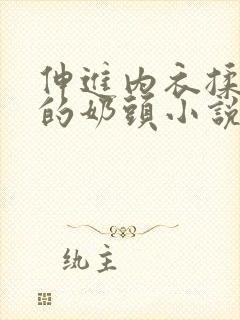 伸進內衣揉
的奶頭小説
紈主